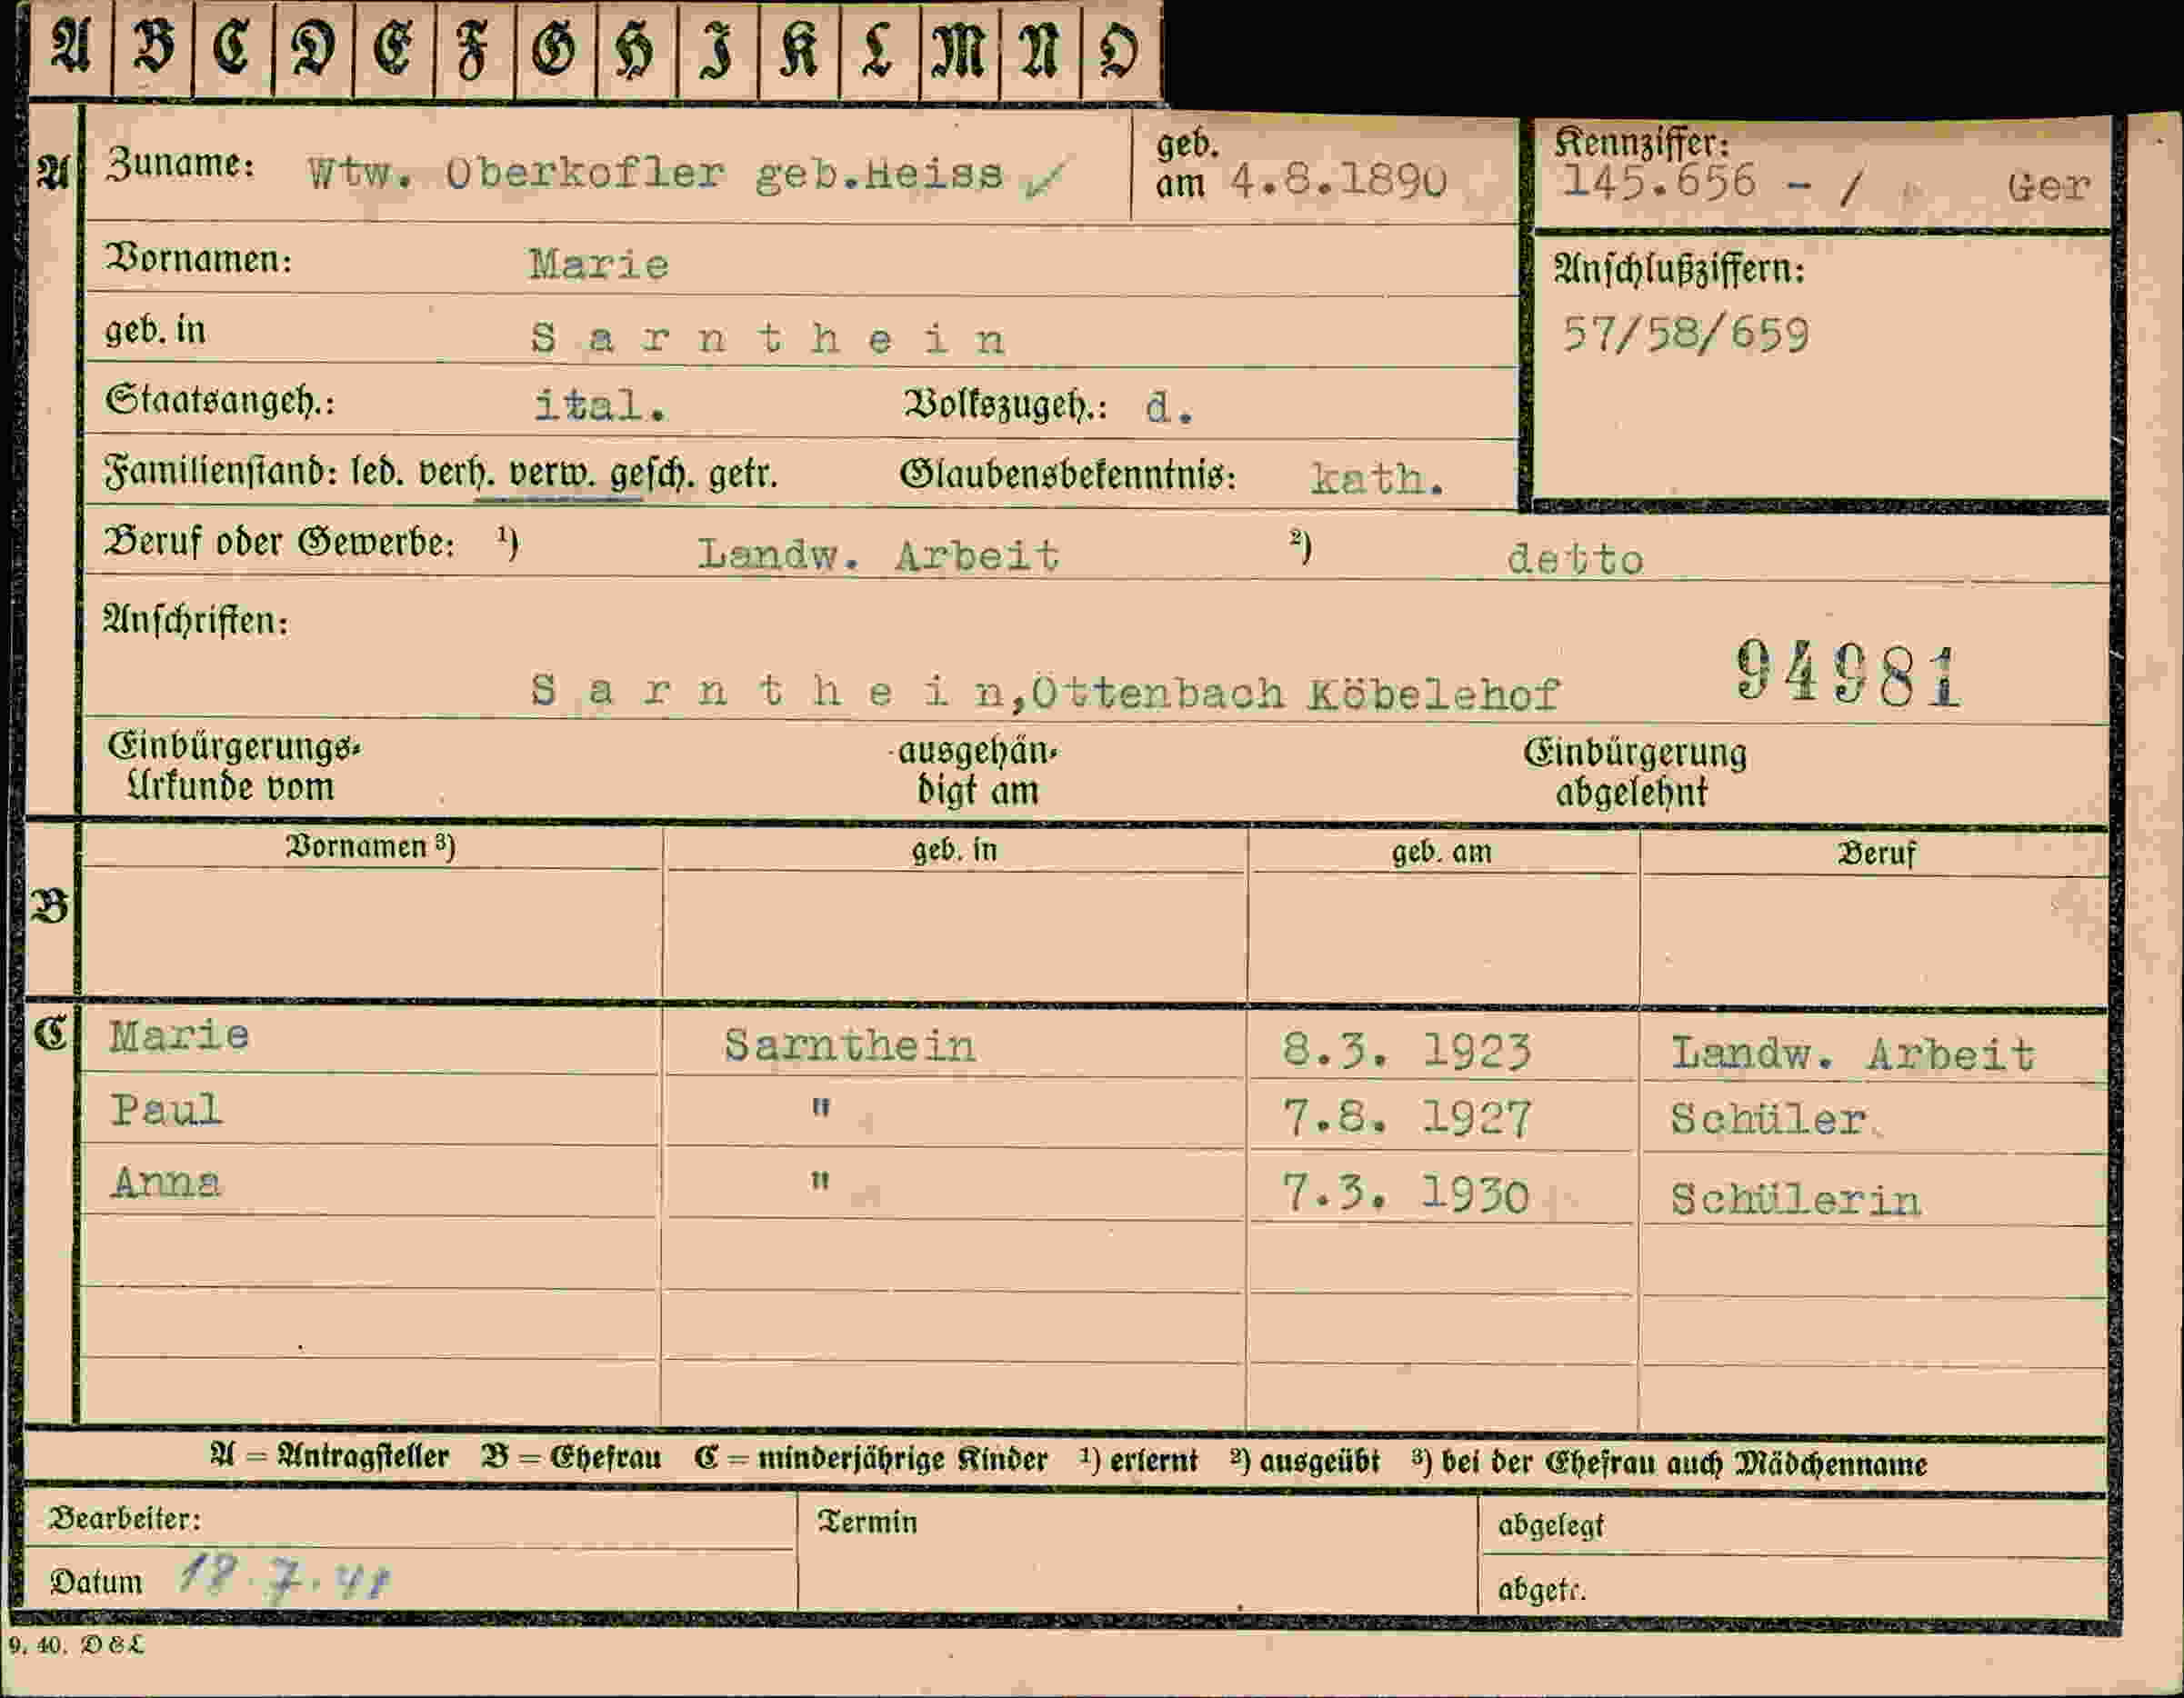 A B C D E F G H I K L M N O
A Zuname: Wtw. Oberkofler geb.Heiss ✓ geb. am 4.8.1890 Kennziffer: 145.656 - / Ger
Vornamen: Marie
Anschlußziffern:
geb. in Sarnthein 57/58/659
Staatsangeh.: ital. Volkszugeh.: d.
Familienstand: led. verh. verw. gesch. getr. Glaubensbekenntnis: kath.
Beruf oder Gewerbe: ¹) Landw. Arbeit ²) detto
Anschriften:
Sarnthein,Öttenbach Köbelehof 94981
Einbürgerungs-Urkunde vom ausgehändigt am Einbürgerung abgelehnt
Vornamen ³) geb. in geb. am Beruf
B
C Marie Sarnthein 8.3. 1923 Landw. Arbeit
Paul " 7.8. 1927 Schüler
Anna " 7.3. 1930 Schülerin
A = Antragsteller B = Ehefrau C = minderjährige Kinder ¹) erlernt ²) ausgeübt ³) bei der Ehefrau auch Mädchenname
Bearbeiter: Termin abgelegt
Datum 18.7.41 abgetr.
9. 40. D&L